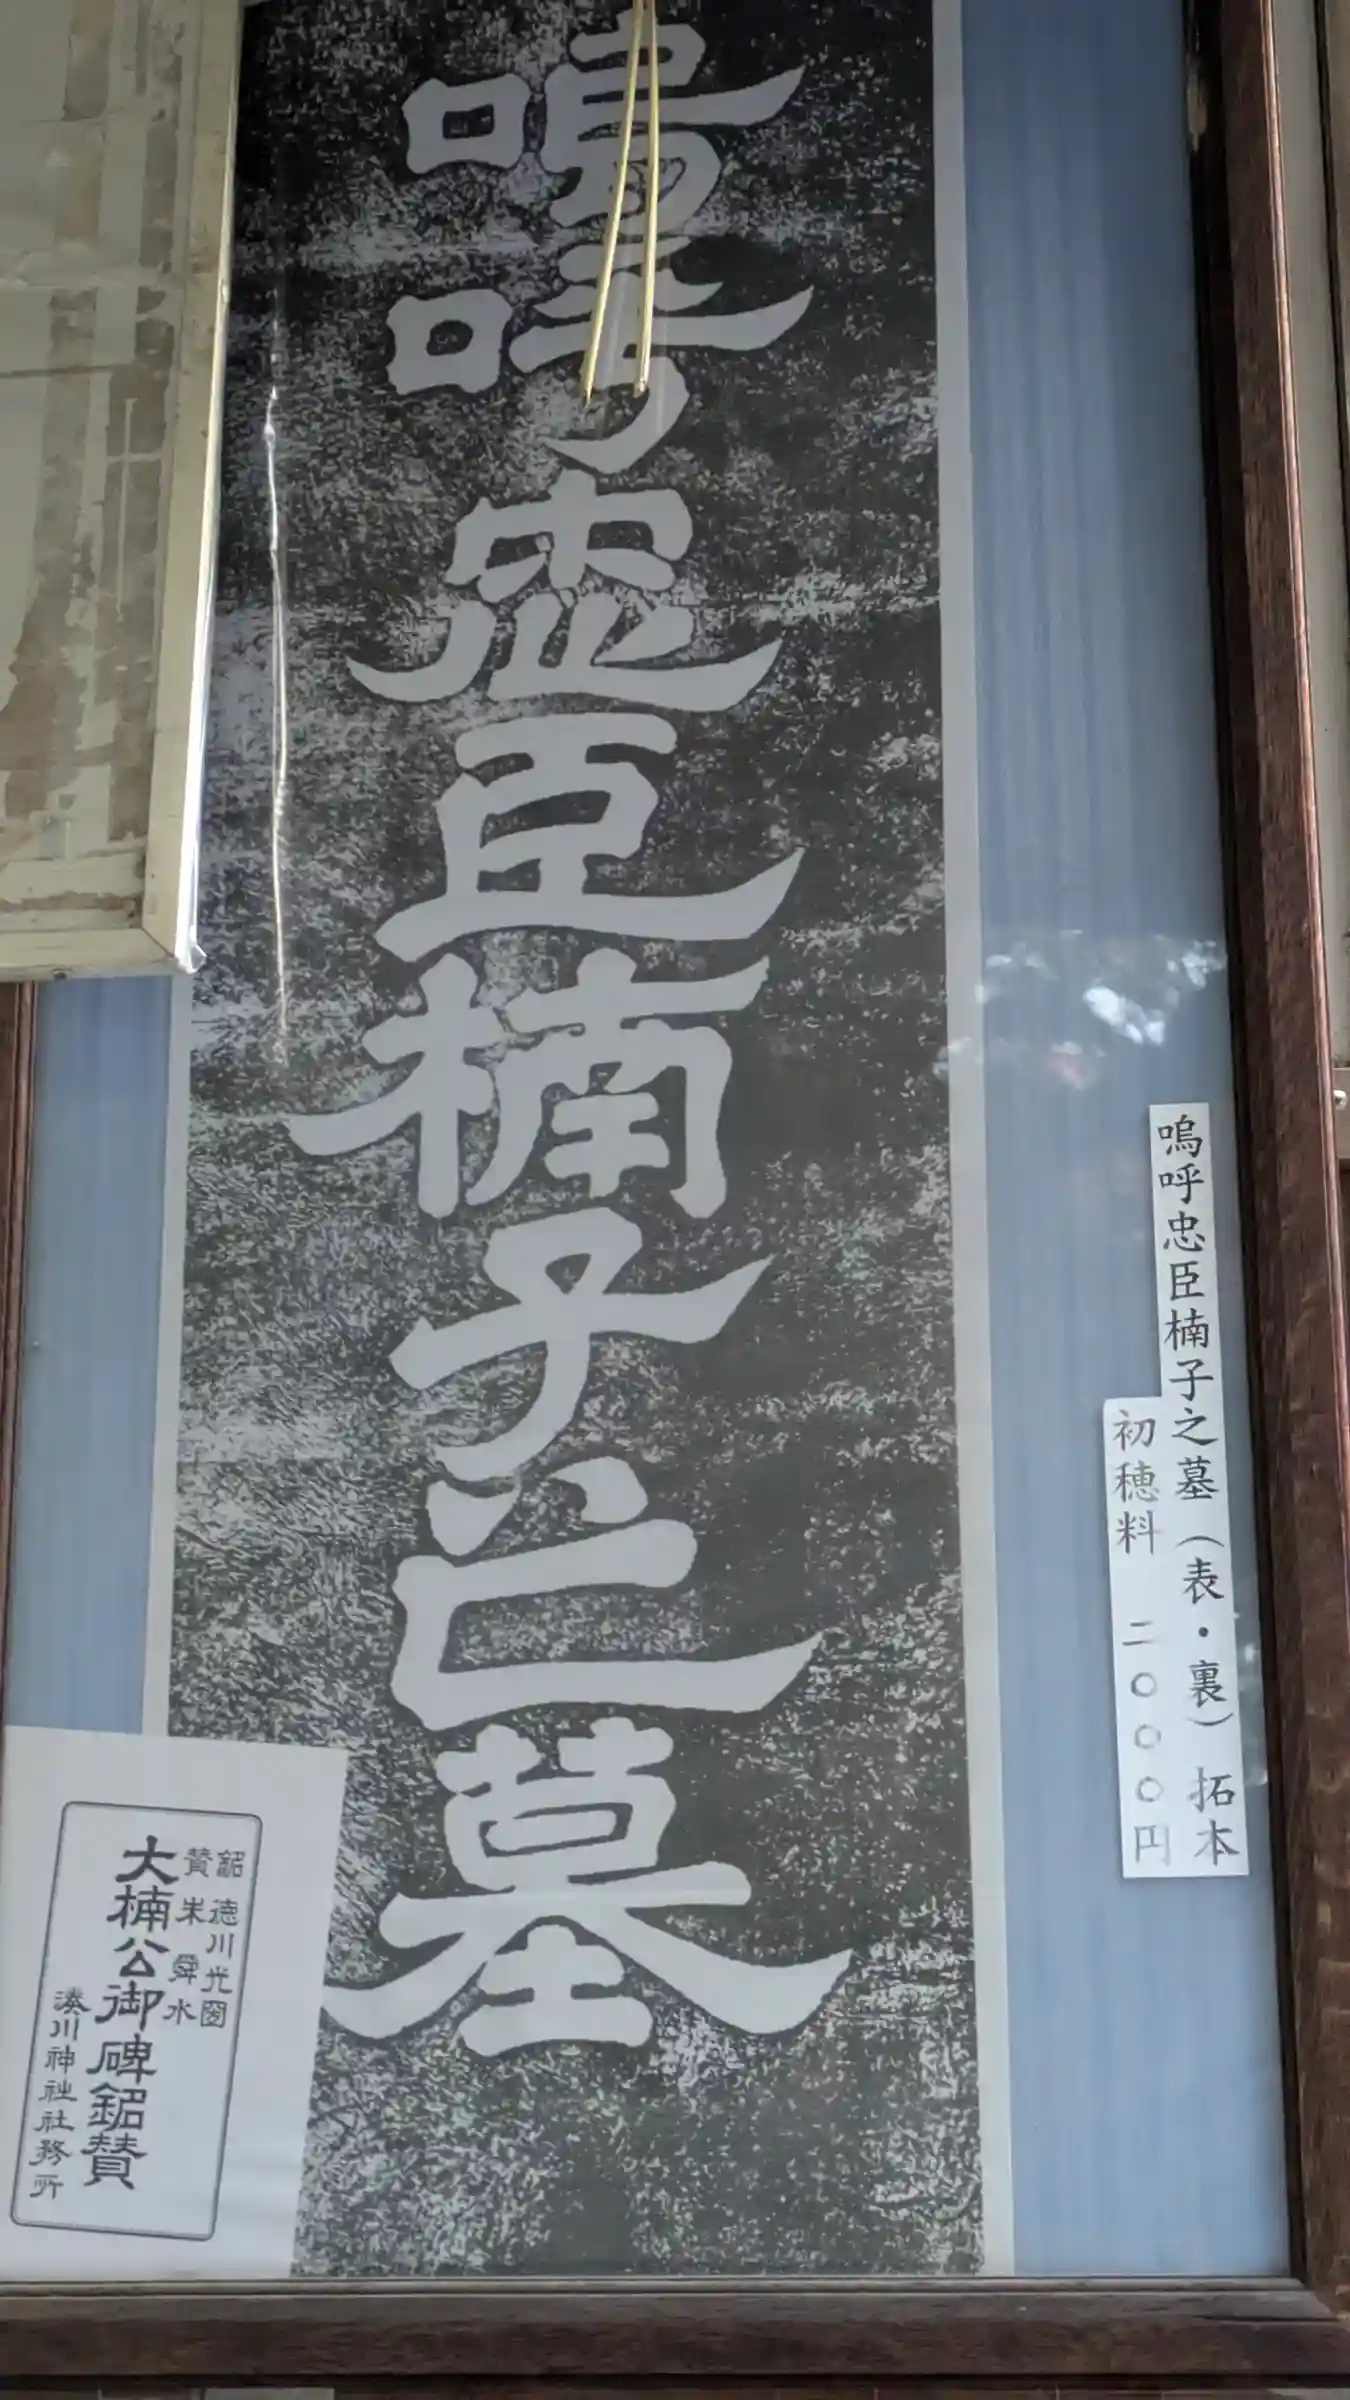 嗚呼忠臣楠子之墓
嗚呼忠臣楠子之墓（表・裏）拓本
初穂料 二〇〇〇円
銘 徳川光圀
賛 朱舜水
大楠公御碑銘賛
湊川神社社務所